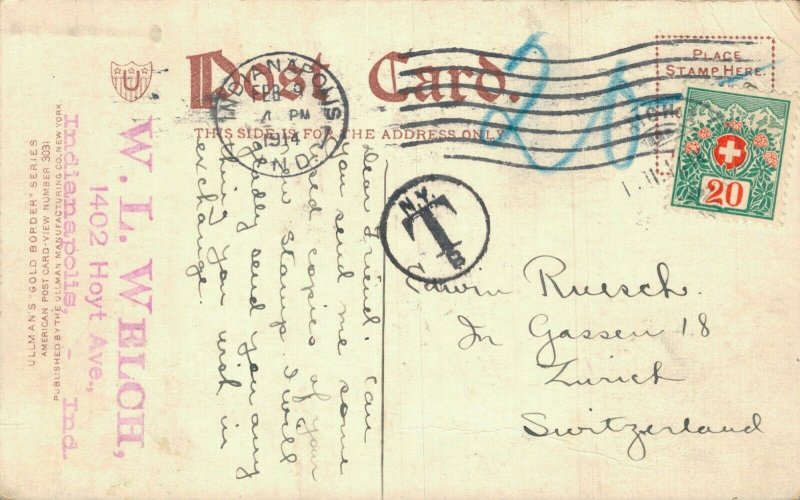 Post Card.
THIS SIDE IS FOR THE ADDRESS ONLY
PLACE
STAMP HERE
INDIANAPOLIS
FEB
PM
1914
IND.
20
20
N.Y.
T
U
ULLMAN'S "GOLD BORDER" SERIES
AMERICAN POST CARD-VIEW NUMBER 3031
PUBLISHED BY THE ULLMAN MANUFACTURING CO. NEW YORK
W. L. WELCH,
1402 Hoyt Ave.,
Indianapolis, - Ind.
Dear Friend. Can
you send me some
used copies of your
new stamp. I will
gladly send you any
thing you wish in
exchange.
Edwin Ruesch.
In Gassen 18
Zurich
Switzerland